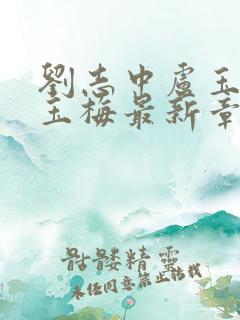 劉志中盧玉
玉梅最新章
骷髏精靈
未經同意禁止轉載